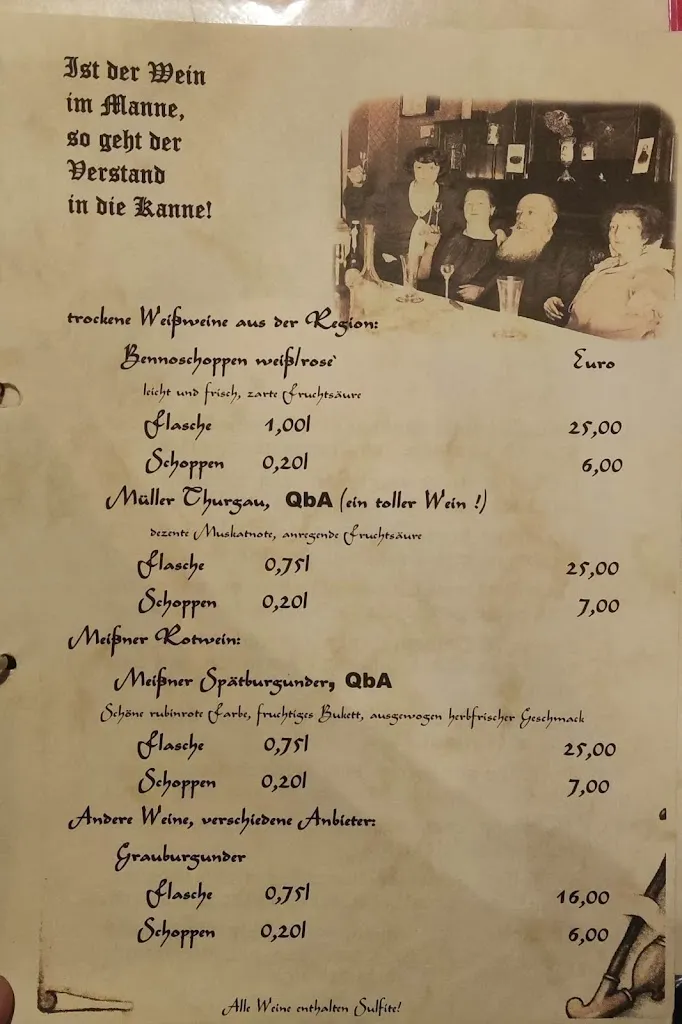 Ist der Wein
im Manne,
so geht der
Verstand
in die Kanne!
trockene Weißweine aus der Region:
Bennoschoppen weiß/rose` Euro
leicht und frisch, zarte Fruchtsäure
Flasche 1,00l 25,00
Schoppen 0,20l 6,00
Müller Thurgau, QbA (ein toller Wein !)
dezente Muskatnote, anregende Fruchtsäure
Flasche 0,75l 25,00
Schoppen 0,20l 7,00
Meißner Rotwein:
Meißner Spätburgunder, QbA
Schöne rubinrote Farbe, fruchtiges Bukett, ausgewogen herbfrischer Geschmack
Flasche 0,75l 25,00
Schoppen 0,20l 7,00
Andere Weine, verschiedene Anbieter:
Grauburgunder
Flasche 0,75l 16,00
Schoppen 0,20l 6,00
Alle Weine enthalten Sulfite!